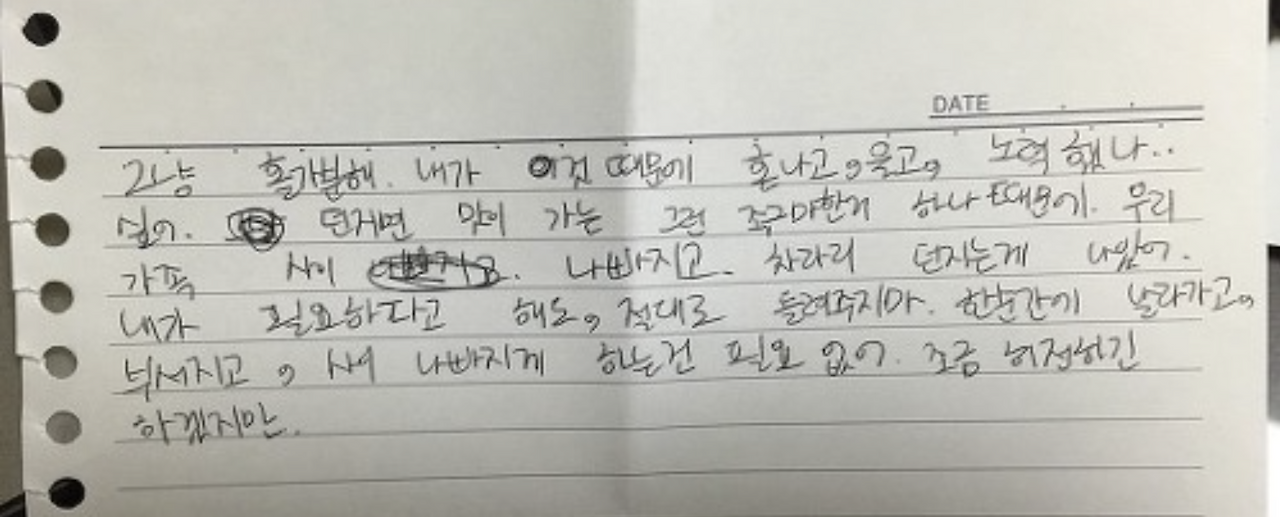 DATE
그냥 홀가분해. 내가 이것 때문에 혼나고, 울고, 노력 했나..
싶어. 던지면 맛이 가는 그런 조그마한거 하나 때문에. 우리
가족 사이 나빠지고. 차라리 던지는게 나았어.
내가 필요하다고 해도, 절대로 돌려주지마. 한순간에 날라가고,
부서지고, 사이 나빠지게 하는건 필요 없어. 조금 허전하긴
하겠지만.